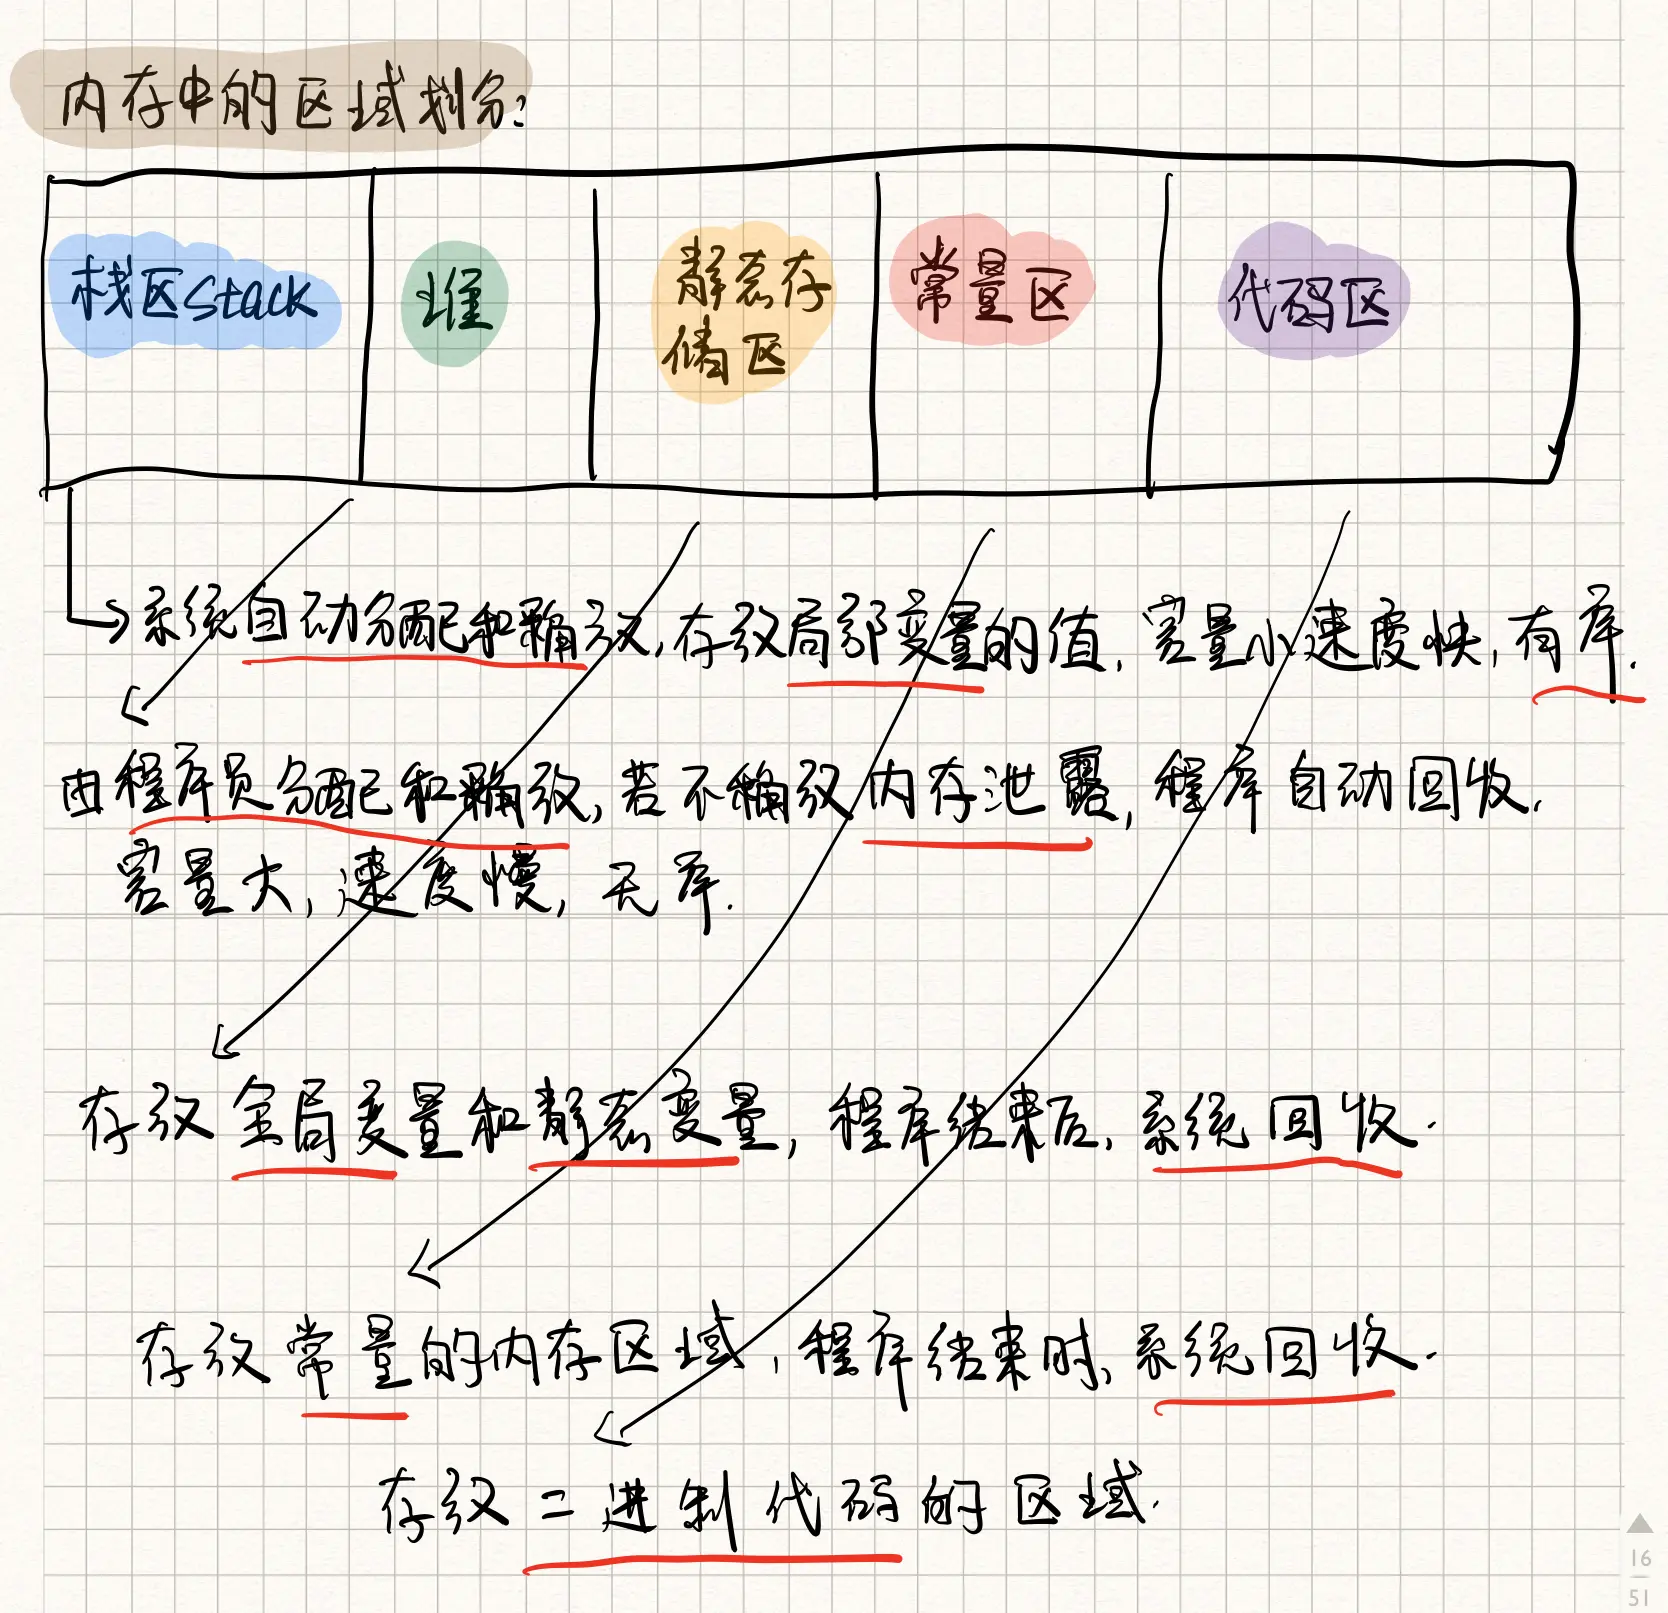 内存中的区域划分:
栈区Stack
堆
静态存
储区
常量区
代码区
系统自动分配和释放,存放局部变量的值,容量小速度快,有序.
由程序员分配和释放,若不释放内存泄露,程序自动回收,
容量大,速度慢,无序.
存放全局变量和静态变量,程序结束后,系统回收.
存放常量的内存区域,程序结束时,系统回收.
存放二进制代码的区域.
16
51